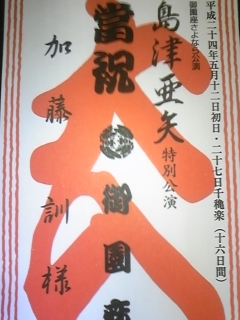 平成二十四年五月十二日初日・二十七日千穐楽（十六日間）
御園座さよなら公演
島津亜矢 特別公演
大入
當祝 御園座
加藤訓様